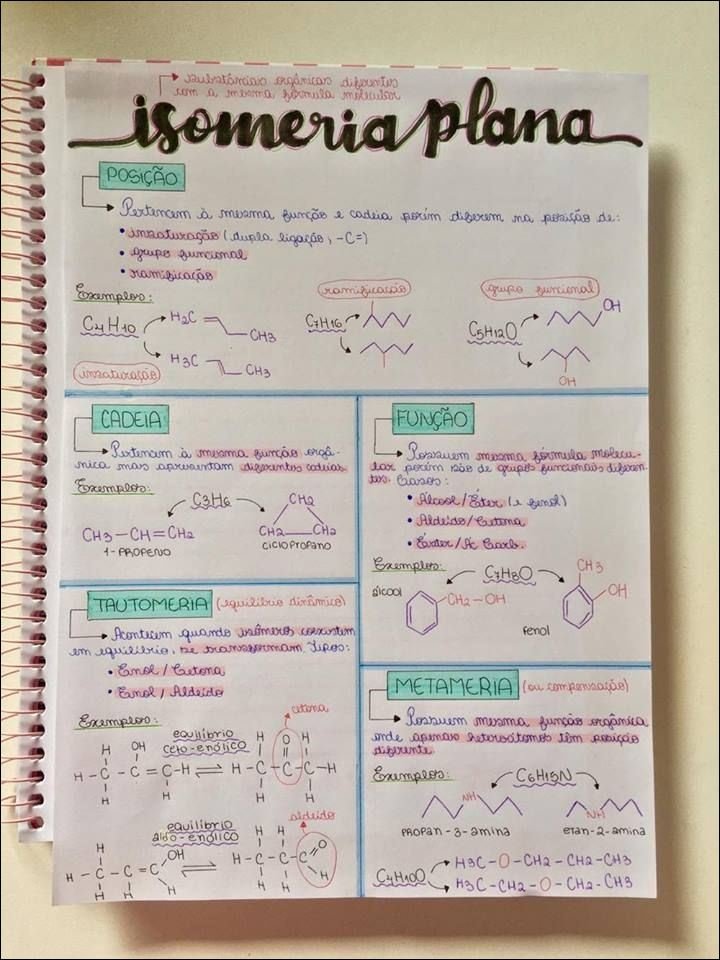 substâncias orgânicas diferentes
com a mesma fórmula molecular
isomeria plana
POSIÇÃO
Pertencem à mesma função e cadeia porém diferem na posição de:
• insaturação (dupla ligação, -C=)
• grupo funcional
• ramificação
Exemplos:
ramificação
grupo funcional
C4H10
H2C
CH3
H3C
CH3
insaturação
C7H16
C5H12O
OH
OH
CADEIA
Pertencem à mesma função orgâ-
nica mas apresentam diferentes cadeias
Exemplos:
C3H6
CH3-CH=CH2
1-PROPENO
CH2
CH2
CH2
CICLOPROPANO
FUNÇÃO
Possuem mesma fórmula molecu-
lar porém são de grupos funcionais diferen-
tes. Casos:
• Álcool/Éter (e fenol)
• Aldeído/Cetona
• Éster/Ác Carb.
Exemplos:
C7H8O
álcool
CH2-OH
CH3
OH
Fenol
TAUTOMERIA (equilíbrio dinâmico)
Acontecem quando isômeros coexistem
em equilíbrio, se transformam. Tipos:
• Enol/Cetona
• Enol/Aldeído
Exemplos:
cetona
equilíbrio
ceto-enólico
H OH
H-C-C=C-H
H H
H O H
H-C-C-C-H
H H
aldeído
equilíbrio
aldo-enólico
H OH
H-C-C=C
H H H
H H O
H-C-C-C
H H H
METAMERIA (ou compensação)
Possuem mesma função orgânica
onde apenas heteroátomos têm posição
diferente
Exemplos:
C6H15N
NH
PROPAN-3-amina
NH
etan-2-amina
C4H10O
H3C-O-CH2-CH2-CH3
H3C-CH2-O-CH2-CH3